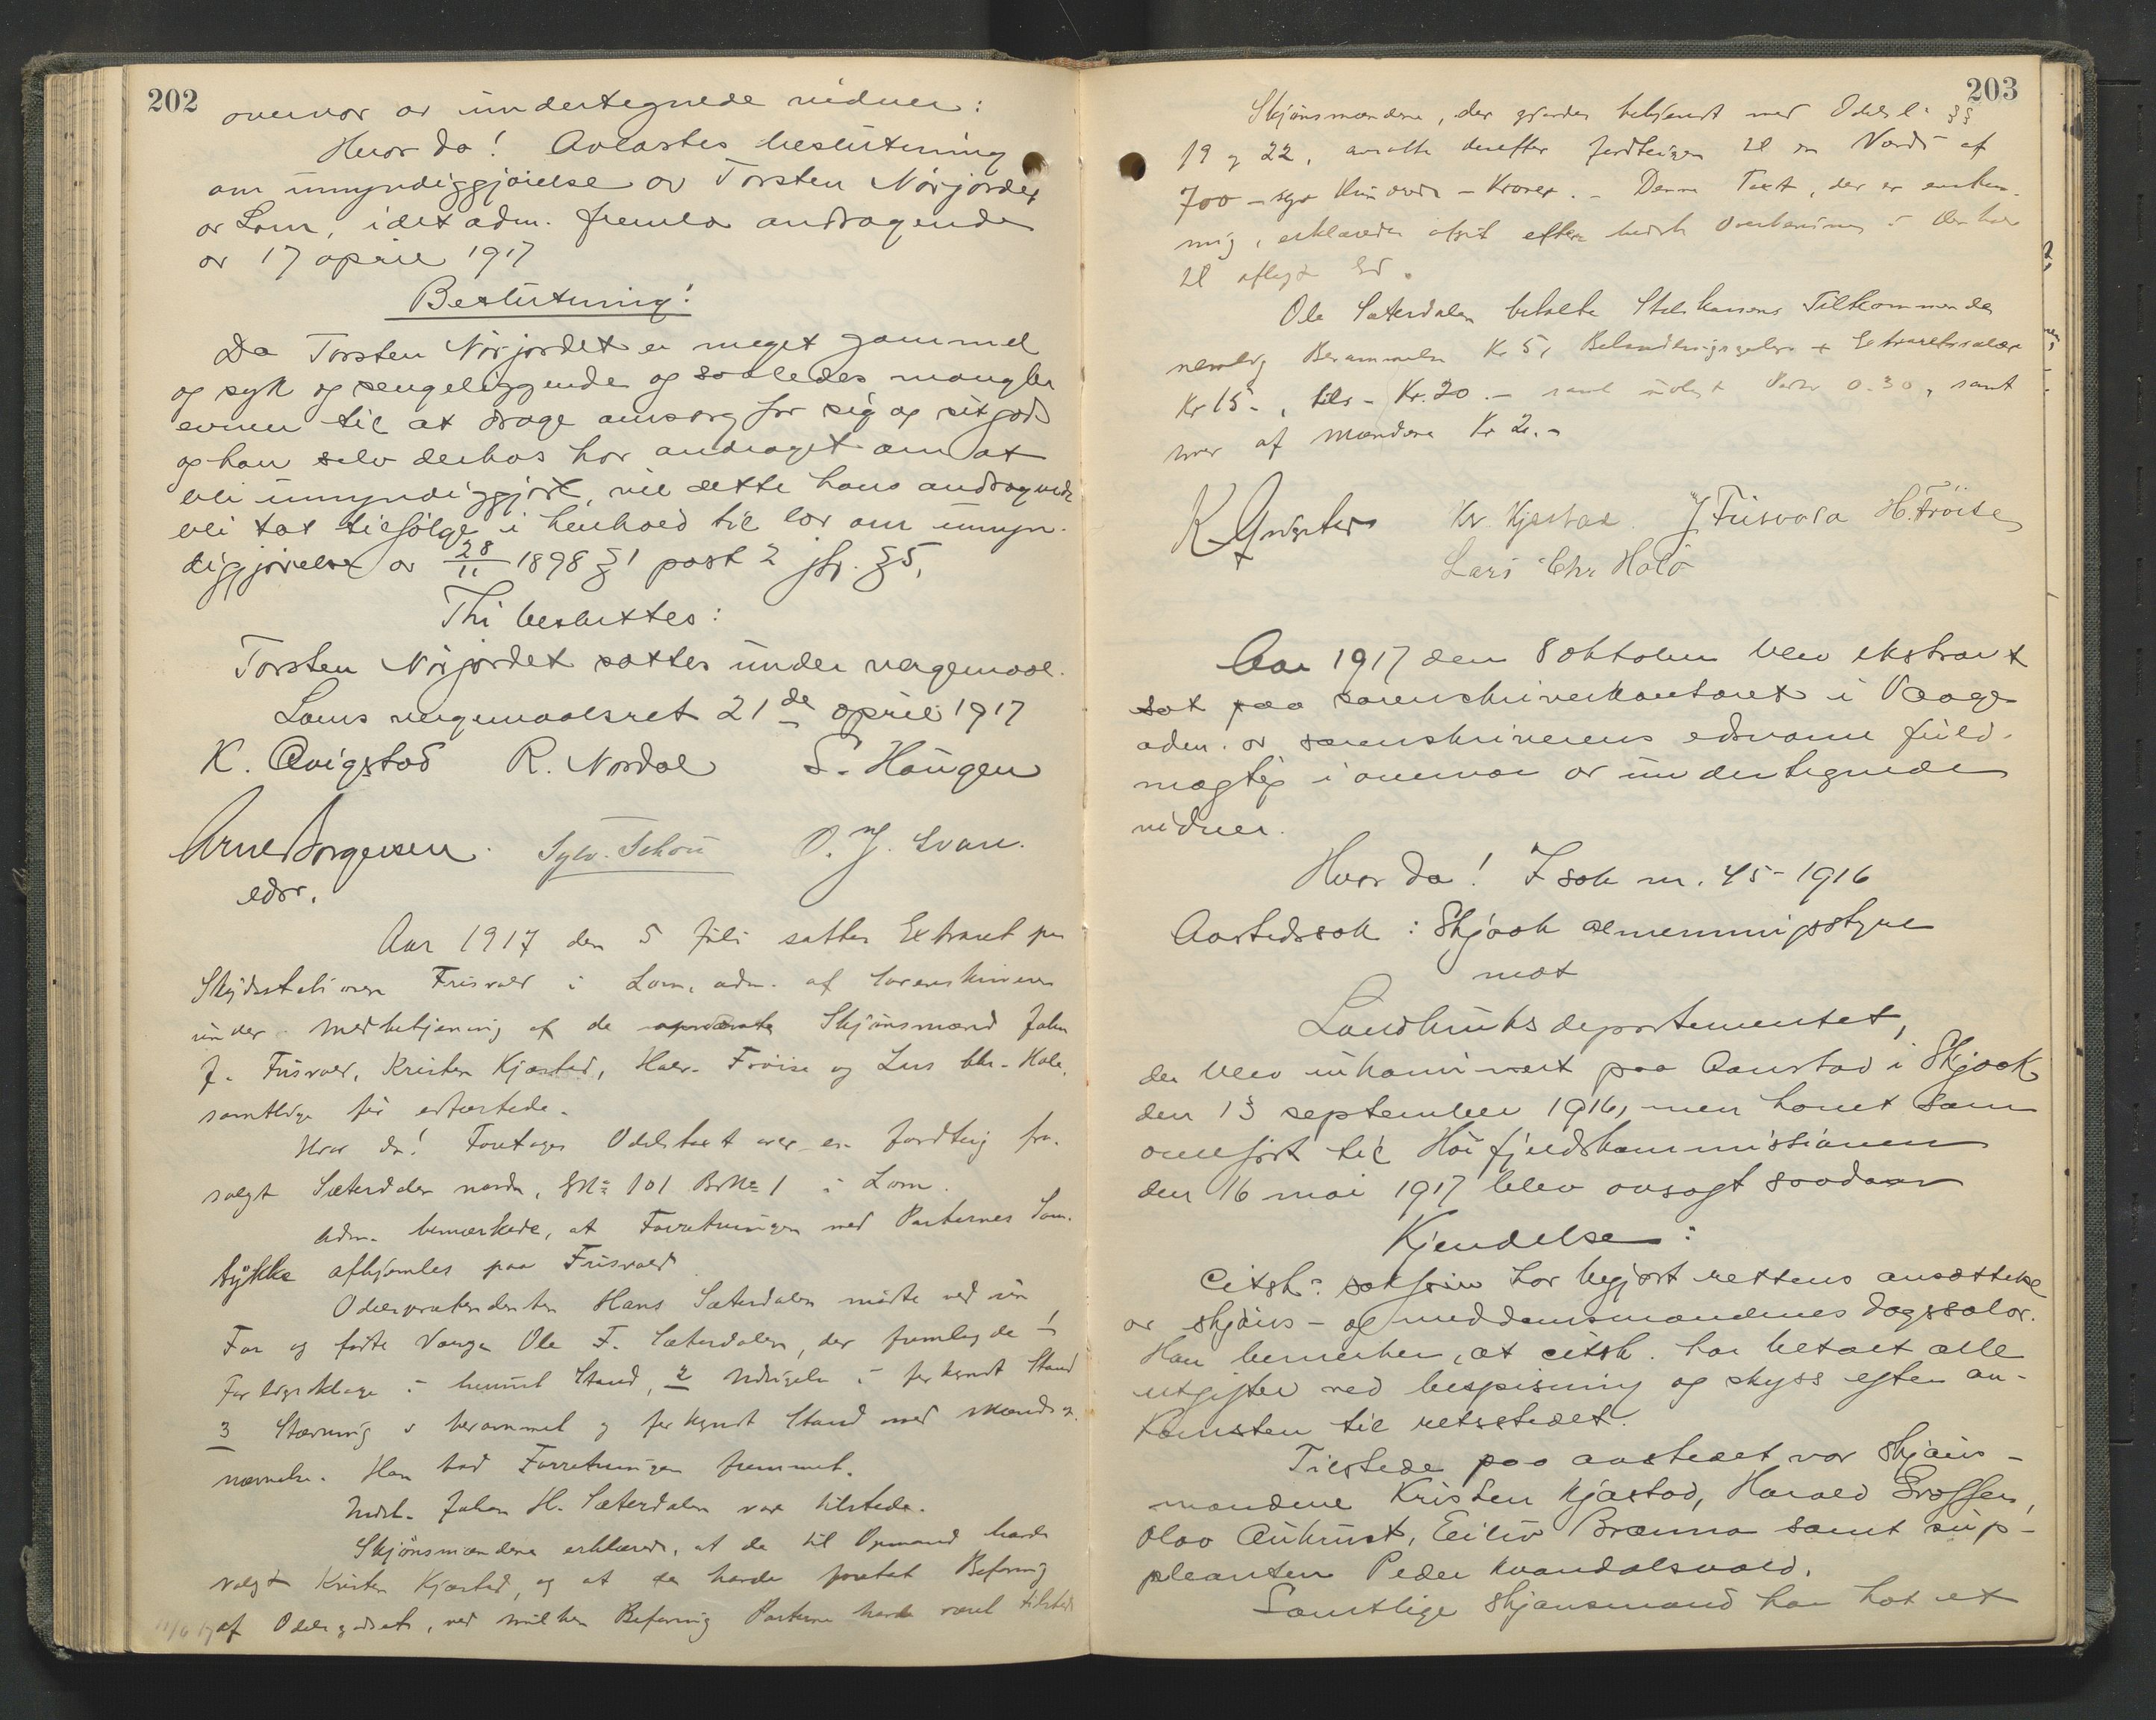 202
overvær av undertegnede vidner:
Hvor da! Avlastes beslutning
om umyndiggjørelse av Torsten Nørjordet
av Lom, idet adm. fremla andragende
av 17 april 1917
Beslutning:
Da Torsten Nørjordet er meget gammel
og syk og sengeliggende og saaledes mangler
evnen til at drage omsorg for sig og sit gods
og han selv derhos har andraget om at
bli umyndiggjort, vil dette hans andragende
bli tat tilfølge i henhold til lov om umyn-
diggjørelse av 28/11 1898 § 1 post 2 jfr. § 5,
Thi besluttes:
Torsten Nørjordet sættes under vergemaal.
Loms vergemaalsret 21de april 1917
K. Qvigstad R. Nordal S. Haugen
Arne Borgersen. Sylv. Schou O. J. Svare.
edsv.
Aar 1917 den 5 Juli sattes Extraret paa
Skydsstationen Frisvold i Lom, adm. af Sorenskriveren
under Medbetjening af de opnævnte Skjønsmænd John
J. Frisvold, Kristen Kjæstad, Halv. Frøise og Lars Chr. Holø,
samtlige før edfæstede.
Hvor da! Foretages Odelstaxt over en Jordteig fra-
solgt Sæterdalen nordre, GNo 101 BrNo 1 i Lom.
Adm. bemærkede, at Forretningen med Parternes Sam-
tykke afhjemles paa Frisvold
Odelspretendenten Hans Sæterdalen mødte ved sin
Far og fødte Værge Ole F. Sæterdalen, der fremlagde 1
Forligsklage i henvist Stand, 2 Udsigelse i forkyndt Stand
3 Stævning i berammet og forkyndt Stand med Mændsop-
nævnelse. Han bad Forretningen fremmet.
Indst. Johan H. Sæterdalen var tilstede.
Skjønsmændene erklærede, at de til Opmand havde
valgt Kristen Kjæstad, og at de havde foretat Befaring
af Odelsgodset, ved hvilken Befaring Parterne havde været tilstede
203
Skjønsmændene, der gjordes bekjendt med Odelsl. §§
19 og 22, ansatte derefter Jordteigen til en Værdi af
700 – syv Hundrede – Kroner. – Denne Taxt, der er enstem-
mig, erklæredes afgit efter bedste Overbevisning i Henhold
til aflagt Ed.
Ole Sæterdalen betalte Statskassens Tilkommende
nemlig Berammelse Kr 5, Behandlingsgebyr + Extraretssalær
Kr 15.–, tils. Kr. 20.– samt Porto 0.30, samt
hver af Mændene Kr 2.–
K Kr. Kjæstad. J Frisvold H. Frøise
Lars Chr Holø
Aar 1917 den 8 oktober blev ekstraret
sat paa sorenskriverkontoret i Vaage
adm. av sorenskriverens edsvorne fuld-
mægtig i overvær av undertegnede
vidner.
Hvor da! I sak nr. 45-1916
Aastedssak: Skjaak almenningsstyre
mot
Landbruksdepartementet,
der blev inkaminert paa Aanstad i Skjaak
den 13 september 1916, men hævet som
overført til Høifjeldskommissionen
den 16 mai 1917 blev avsagt saadan
Kjendelse:
Citsk: sakfører har begjært rettens ansættelse
av skjøns- og meddomsmændenes dagsalær.
Han bemerker, at citsk. har betalt alle
utgifter ved bespisning og skyss efter an-
komsten til retsstedet.
Tilstede paa aastedet var skjøns-
mændene Kristen Kjæstad, Harald Graffer,
Olav Aukrust, Eiliv Brænna samt sup-
pleanten Peder Kvandalsvold.
Samtlige skjønsmænd har hat et